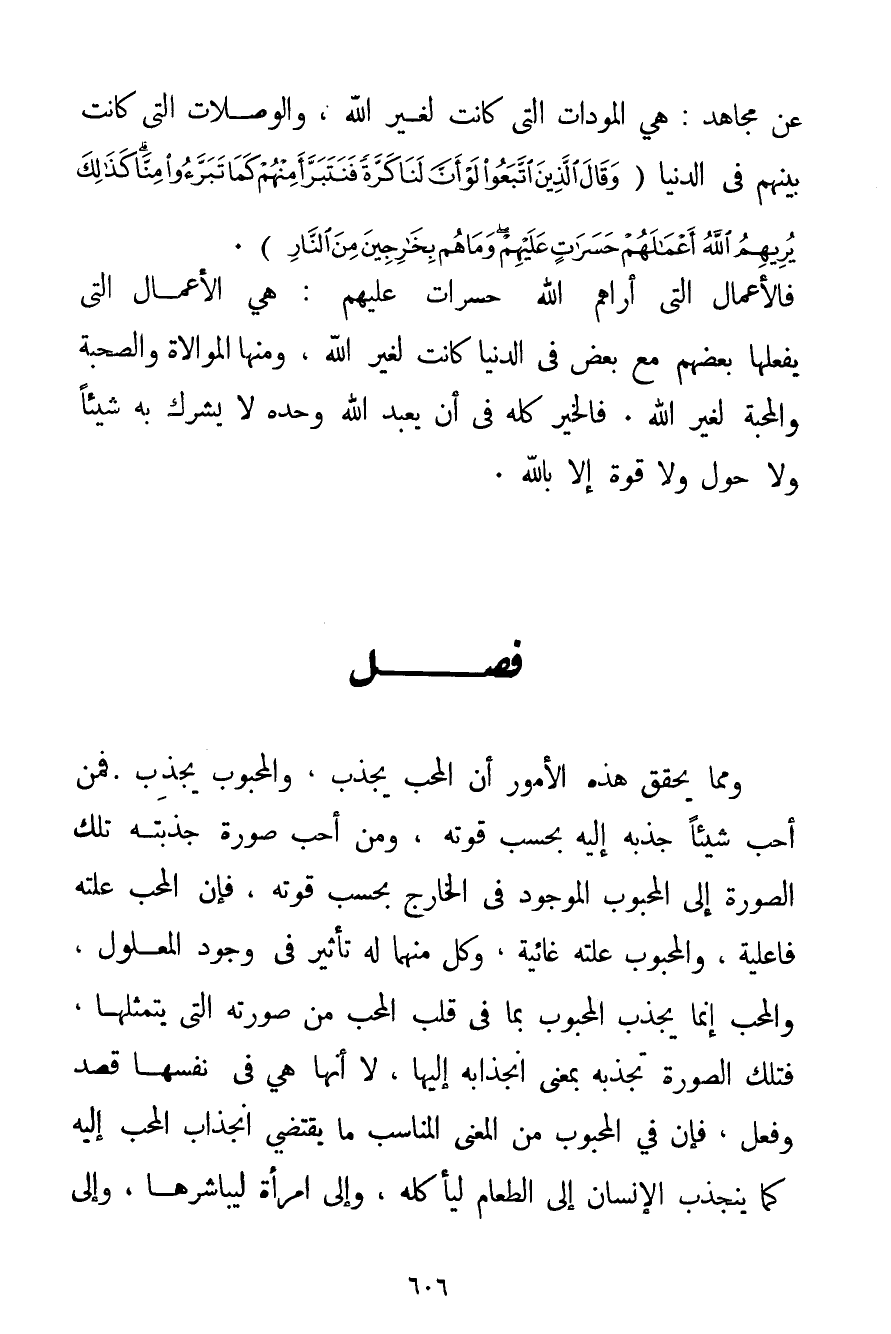 عن مجاهد : هي المودات التى كانت لغـــير الله ، والوصـــلات التى كانت
بينهم فى الدنيا ( وَقَالَ ٱلَّذِينَ ٱتَّبَعُوا۟ لَوْ أَنَّ لَنَا كَرَّةً فَنَتَبَرَّأَ مِنْهُمْ كَمَا تَبَرَّءُوا۟ مِنَّا ۗ كَذَٰلِكَ
يُرِيهِمُ ٱللَّهُ أَعْمَٰلَهُمْ حَسَرَٰتٍ عَلَيْهِمْ ۖ وَمَا هُم بِخَٰرِجِينَ مِنَ ٱلنَّارِ ) .
فالأعمال التى أراهم الله حسرات عليهم : هي الأعمـــال التى
يفعلها بعضهم مع بعض فى الدنيا كانت لغير الله ، ومنها الموالاة والصحبة
والمحبة لغير الله . فالخير كله فى أن يعبد الله وحده لا يشرك به شيئاً
ولا حول ولا قوة إلا بالله .
فصـــــل
ومما يحقق هذه الأمور أن المحب يجذب ، والمحبوب يجذب . فمن
أحب شيئاً جذبه إليه بحسب قوته ، ومن أحب صورة جذبتـــه تلك
الصورة إلى المحبوب الموجود فى الخارج بحسب قوته ، فإن المحب علته
فاعلية ، والمحبوب علته غائية ، وكل منهما له تأثير فى وجود المعـــلول ،
والمحب إنما يجذب المحبوب بما فى قلب المحب من صورته التى يتمثلهـــا ،
فتلك الصورة تجذبه بمعنى انجذابه إليها ، لا أنها هي فى نفسهـــا قصد
وفعل ، فإن في المحبوب من المعنى المناسب ما يقتضي انجذاب المحب إليه
كما ينجذب الإنسان إلى الطعام ليأكله ، وإلى امرأة ليباشرهـــا ، وإلى
٦٠٦